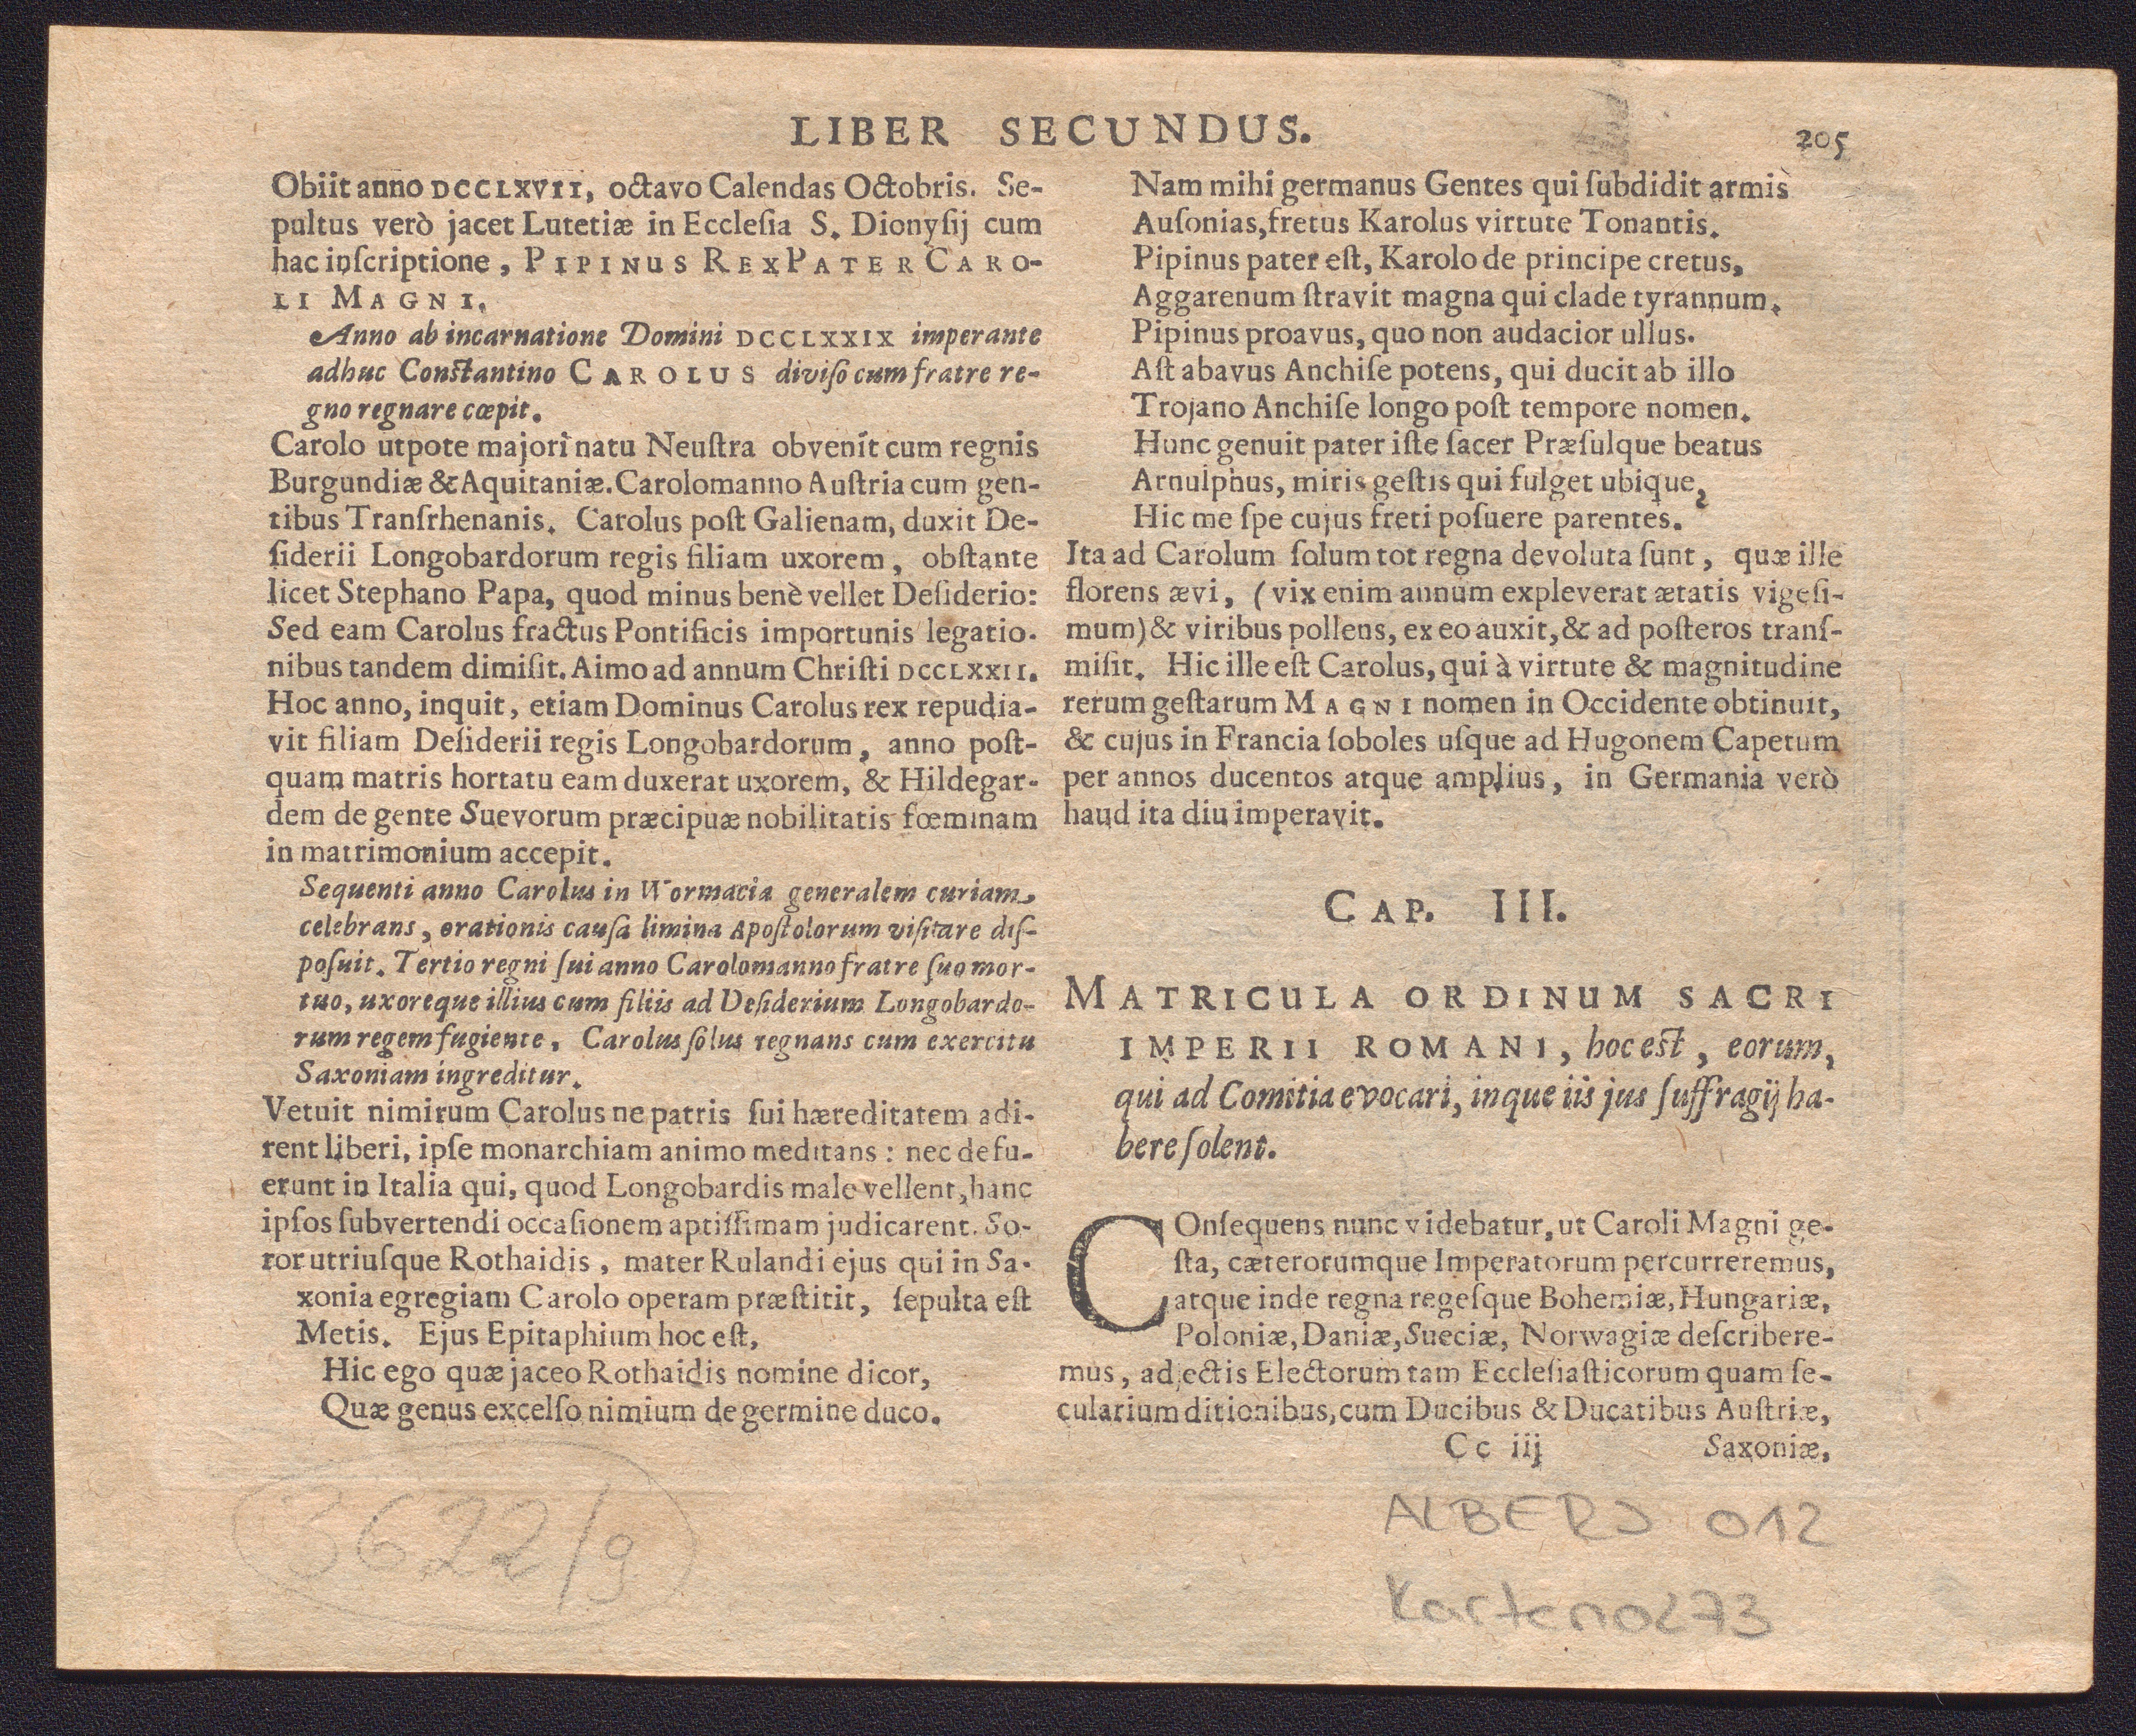 LIBER SECUNDUS.
205
Obiit anno DCCLXVII, octavo Calendas Octobris. Se-
pultus verò jacet Lutetiæ in Ecclesia S. Dionysij cum
hac inscriptione, PIPINUS REX PATER CARO-
LI MAGNI.
Anno ab incarnatione Domini DCCLXXIX imperante
adhuc Constantino CAROLUS diviso cum fratre re-
gno regnare cœpit.
Carolo utpote majori natu Neustra obvenit cum regnis
Burgundiæ & Aquitaniæ. Carolomanno Austria cum gen-
tibus Transrhenanis. Carolus post Galienam, duxit De-
siderii Longobardorum regis filiam uxorem, obstante
licet Stephano Papa, quod minus benè vellet Desiderio:
Sed eam Carolus fractus Pontificis importunis legatio-
nibus tandem dimisit. Aimo ad annum Christi DCCLXXII.
Hoc anno, inquit, etiam Dominus Carolus rex repudia-
vit filiam Desiderii regis Longobardorum, anno post-
quam matris hortatu eam duxerat uxorem, & Hildegar-
dem de gente Suevorum præcipuæ nobilitatis fœminam
in matrimonium accepit.
Sequenti anno Carolus in Wormacia generalem curiam
celebrans, orationis causa limina Apostolorum visitare dis-
posuit. Tertio regni sui anno Carolomanno fratre suo mor-
tuo, uxoreque illius cum filiis ad Desiderium Longobardo-
rum regem fugiente, Carolus solus regnans cum exercitu
Saxoniam ingreditur.
Vetuit nimirum Carolus ne patris sui hæreditatem adi-
rent liberi, ipse monarchiam animo meditans: nec defu-
erunt in Italia qui, quod Longobardis male vellent, hanc
ipsos subvertendi occasionem aptissimam judicarent. So-
ror utriusque Rothaidis, mater Rulandi ejus qui in Sa-
xonia egregiam Carolo operam præstitit, sepulta est
Metis. Ejus Epitaphium hoc est,
Hic ego quæ jaceo Rothaidis nomine dicor,
Quæ genus excelso nimium de germine duco.
Nam mihi germanus Gentes qui subdidit armis
Ausonias, fretus Karolus virtute Tonantis.
Pipinus pater est, Karolo de principe cretus,
Aggarenum stravit magna qui clade tyrannum.
Pipinus proavus, quo non audacior ullus.
Ast abavus Anchise potens, qui ducit ab illo
Trojano Anchise longo post tempore nomen.
Hunc genuit pater iste sacer Præsulque beatus
Arnulphus, miris gestis qui fulget ubique,
Hic me spe cujus freti posuere parentes.
Ita ad Carolum solum tot regna devoluta sunt, quæ ille
florens ævi, (vix enim annum expleverat ætatis vigesi-
mum) & viribus pollens, ex eo auxit, & ad posteros trans-
misit. Hic ille est Carolus, qui à virtute & magnitudine
rerum gestarum MAGNI nomen in Occidente obtinuit,
& cujus in Francia soboles usque ad Hugonem Capetum
per annos ducentos atque amplius, in Germania verò
haud ita diu imperavit.
CAP. III.
MATRICULA ORDINUM SACRI
IMPERII ROMANI, hoc est, eorum,
qui ad Comitia evocari, inque iis jus suffragij ha-
bere solent.
COnsequens nunc videbatur, ut Caroli Magni ge-
sta, cæterorumque Imperatorum percurreremus,
atque inde regna regesque Bohemiæ, Hungariæ,
Poloniæ, Daniæ, Sueciæ, Norwagiæ describere-
mus, adjectis Electorum tam Ecclesiasticorum quam se-
cularium ditionibus, cum Ducibus & Ducatibus Austriæ,
Cc iij Saxoniæ,
3622/9
ALBERS 012
Karten 0273